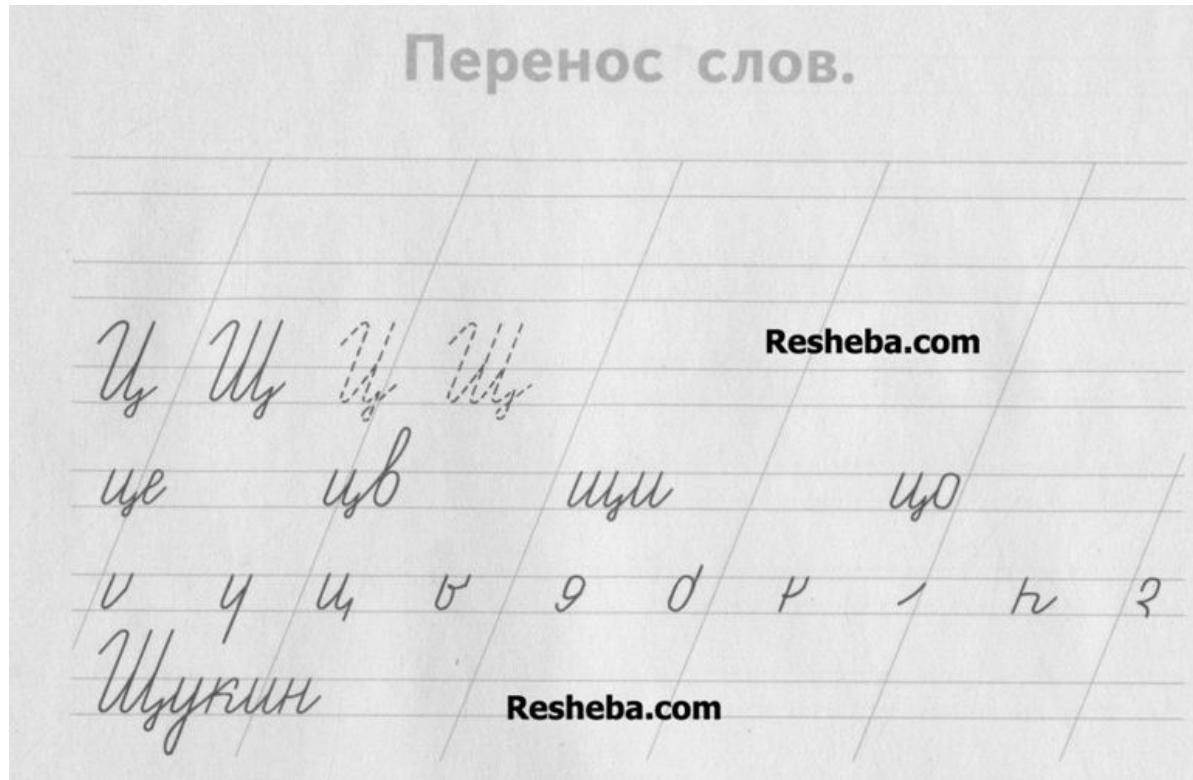 Перенос слов.
Ц Щ Ц Щ Resheba.com
це цв щи цо
Щукин Resheba.com